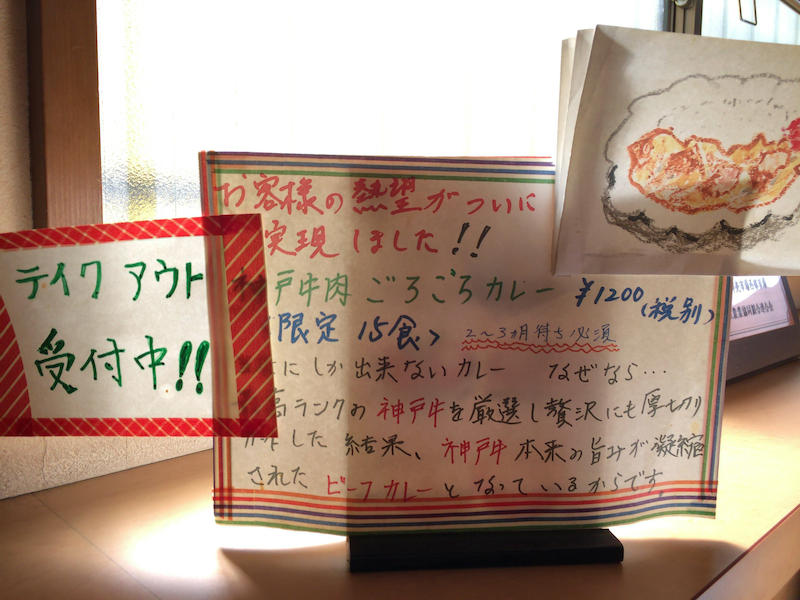 テイクアウト
受付中!!
お客様の熱望がついに
実現しました!!
戸牛肉ごろごろカレー ¥1200(税別)
限定15食〉 2〜3ヵ月待ち必須
にしか出来ないカレー なぜなら…
高ランクの神戸牛を厳選し贅沢にも厚切り
した結果、神戸牛本来の旨みが凝縮
された ビーフカレーとなっているからです。